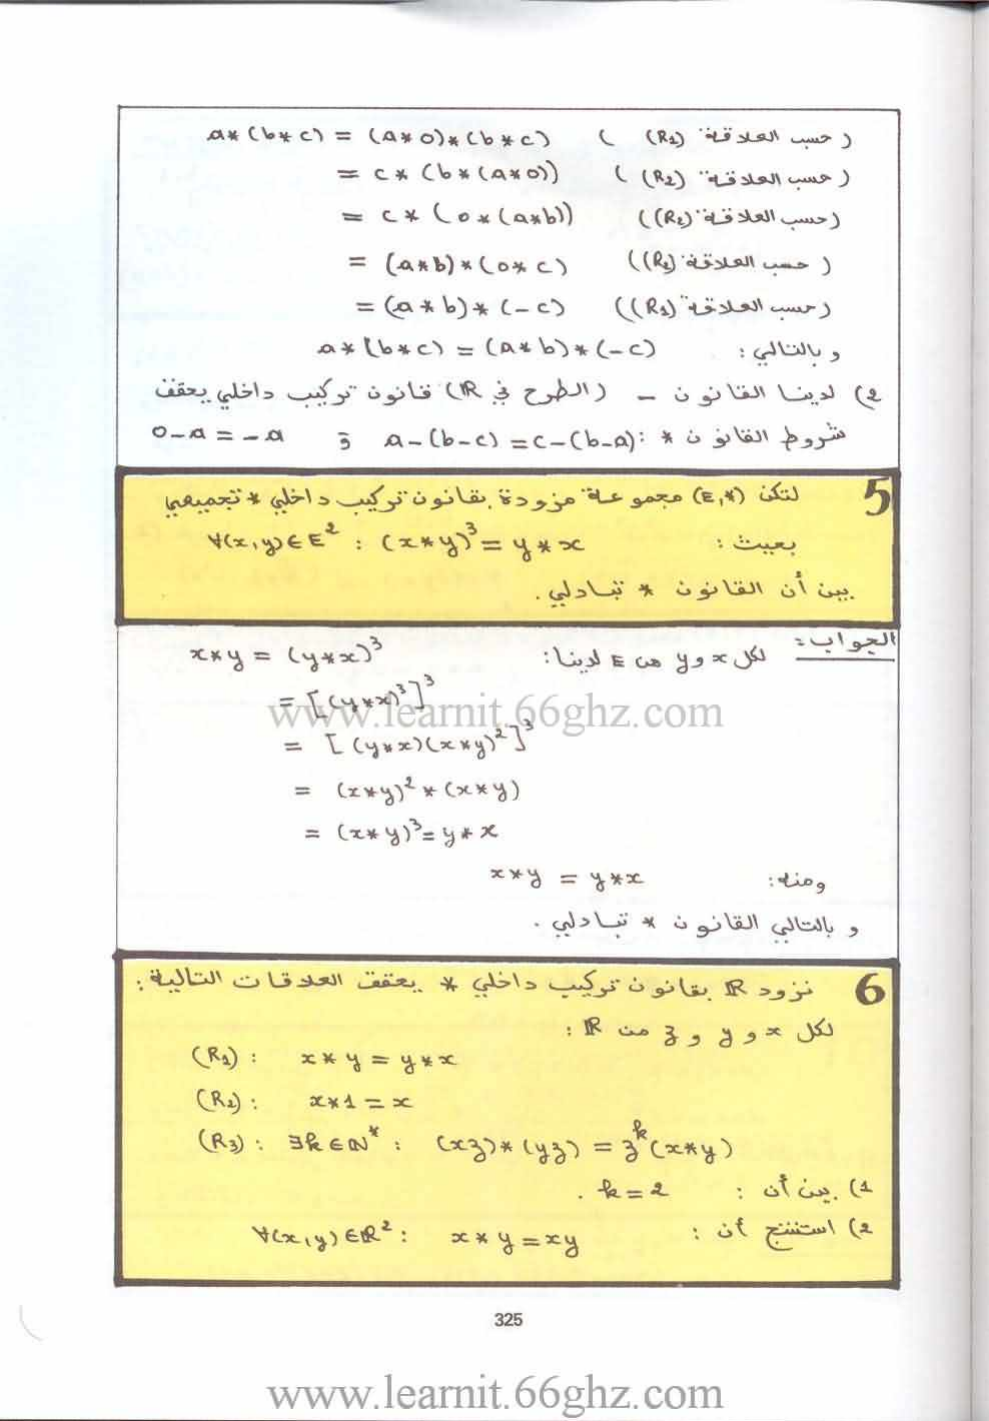 a*(b*c) = (a*0)*(b*c) ( (R₁) حسب العلاقة )
= c*(b*(a*0)) ( (R₂) حسب العلاقة )
= c*(0*(a*b)) ((R₂) حسب العلاقة)
= (a*b)*(0*c) ((R₂) حسب العلاقة )
= (a*b)*(-c) ((R₁) حسب العلاقة)
و بالتالي : a*(b*c) = (a*b)*(-c)
2) لدينا القانون - (الطرح في ℝ) قانون تركيب داخلي يحقق
شروط القانون * : a-(b-c) = c-(b-a) و 0-a = -a
5 لتكن (E,*) مجموعة مزودة بقانون تركيب داخلي * تجميعي
بحيث : ∀(x,y)∈E² : (x*y)³ = y*x
بين أن القانون * تبادلي .
الجواب :
لكل x و y من E لدينا : x*y = (y*x)³
= [(y*x)³]³
www.learnit.66ghz.com
= [(y*x)(x*y)²]³
= (x*y)² * (x*y)
= (x*y)³ = y*x
ومنه : x*y = y*x
و بالتالي القانون * تبادلي .
6 نزود ℝ بقانون تركيب داخلي * يحقق العلاقات التالية :
لكل x و y و z من ℝ :
(R₁) : x*y = y*x
(R₂) : x*1 = x
(R₃) : ∃k∈ℕ* : (xz)*(yz) = zᵏ(x*y)
1) بين أن : k = 2 .
2) استنتج أن : ∀(x,y)∈ℝ² : x*y = xy
325
www.learnit.66ghz.com